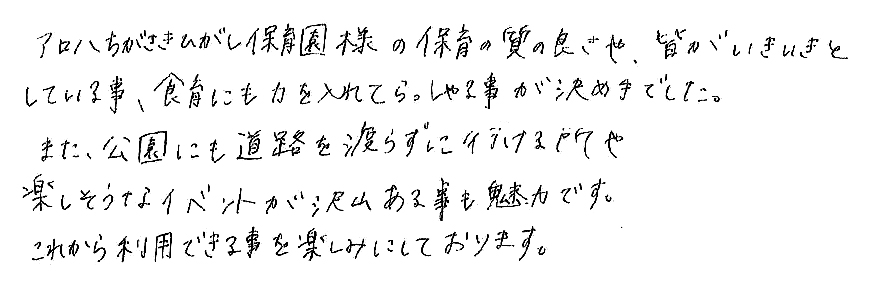 アロハちがさきひがし保育園様の保育の質の良さや、皆がいきいきと
している事、食育にも力を入れてらっしゃる事が決め手でした。
また、公園にも道路を渡らずに行ける所や
楽しそうなイベントが沢山ある事も魅力です。
これから利用できる事を楽しみにしております。